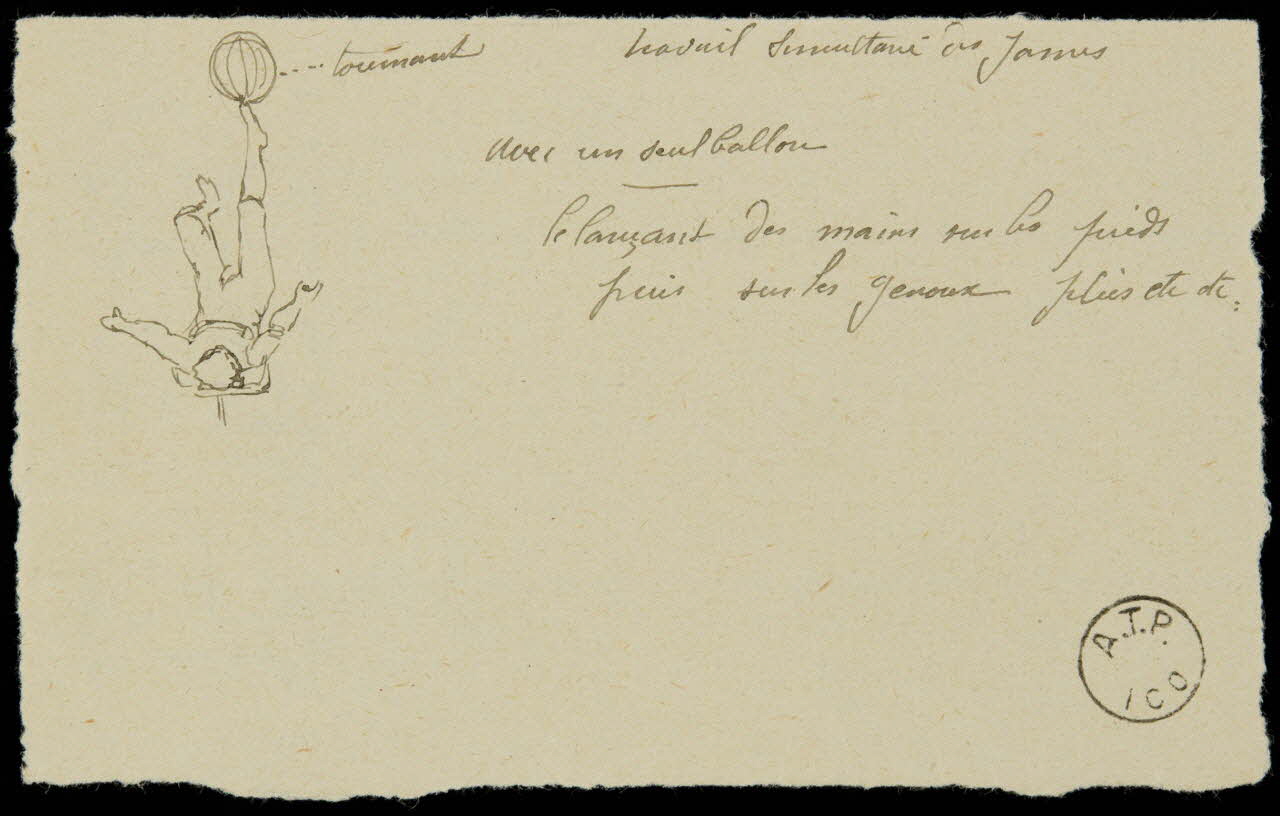 tournant
travail simultané des James
avec un seul ballon
le lançant des mains sur les pieds
puis sur les genoux pliés etc etc
A.T.P.
ICO